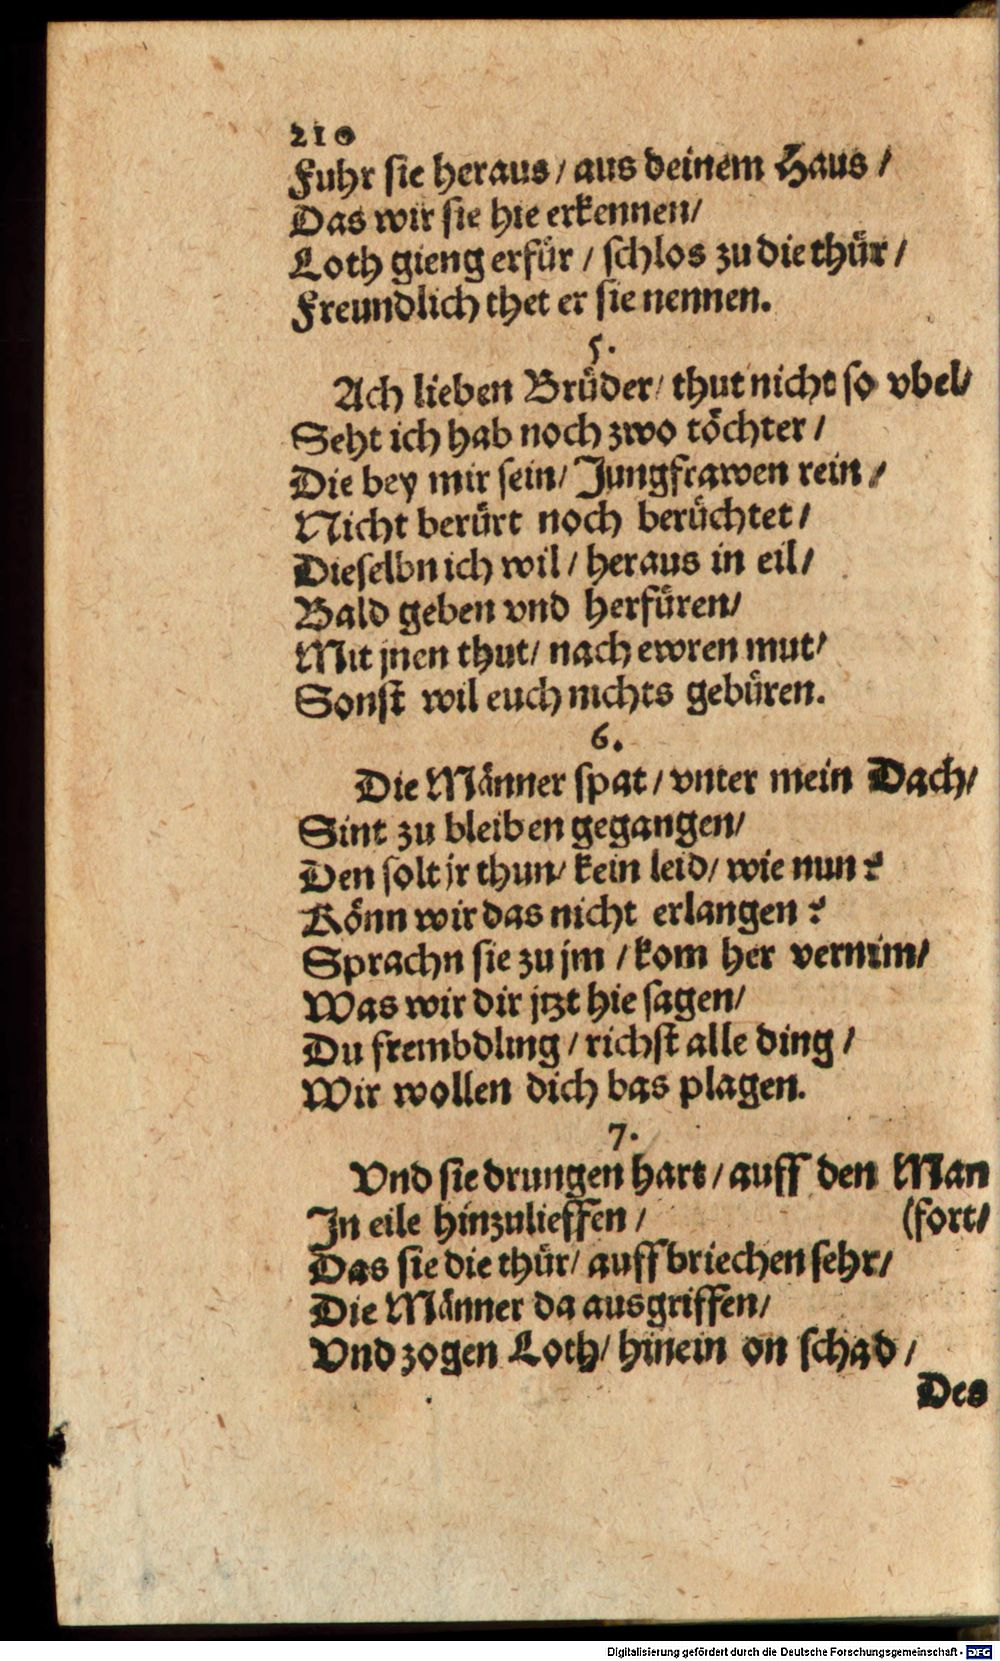 210
Fuhr sie heraus / aus deinem Haus /
Das wir sie hie erkennen/
Loth gieng erfür / schlos zu die thür /
Freundlich thet er sie nennen.
5.
Ach lieben Brüder/ thut nicht so vbel/
Seht ich hab noch zwo töchter /
Die bey mir sein/ Jungfrawen rein /
Nicht berürt noch berüchtet /
Dieselbn ich wil / heraus in eil /
Bald geben vnd herfüren/
Mit jnen thut/ nach ewren mut/
Sonst wil euch nichts gebüren.
6.
Die Männer spat / vnter mein Dach/
Sint zu bleiben gegangen/
Den solt jr thun/ kein leid/ wie nun?
Könn wir das nicht erlangen?
Sprachn sie zu jm / kom her vernim/
Was wir dir jtzt hie sagen/
Du frembdling / richst alle ding /
Wir wollen dich bas plagen.
7.
Vnd sie drungen hart / auff den Man
In eile hinzulieffen / (fort/
Das sie die thür/ auff briechen sehr/
Die Männer da ausgriffen/
Vnd zogen Loth/ hinein on schad /
Des
Digitalisierung gefördert durch die Deutsche Forschungsgemeinschaft - DFG